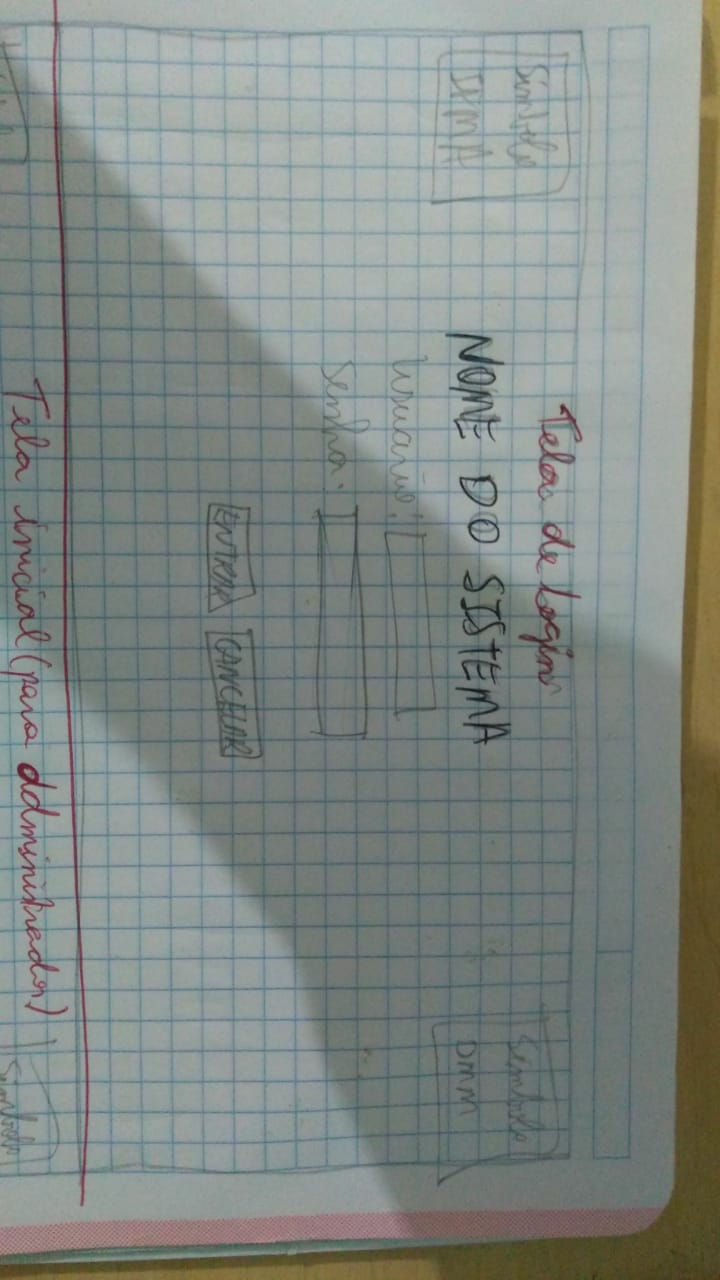 Tela de Login
Símbolo
Símbolo
NOME DO SISTEMA
DMM
Usuário:
Senha:
ENTRAR CANCELAR
Tela inicial (para administrador)
Símbolo